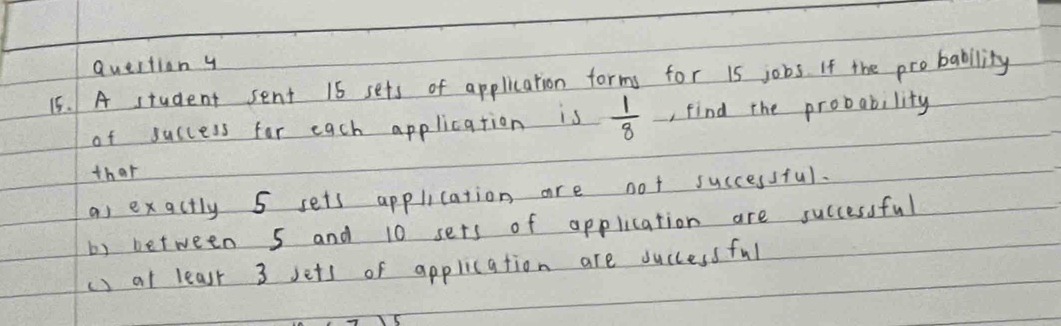 Question 4
15. A student sent 15 sets of application forms for 15 jobs. If the probability
of success for each application is 1/8, find the probability
that
a) exactly 5 sets application are not successful.
b) between 5 and 10 sets of application are successful
c) at least 3 sets of application are successful